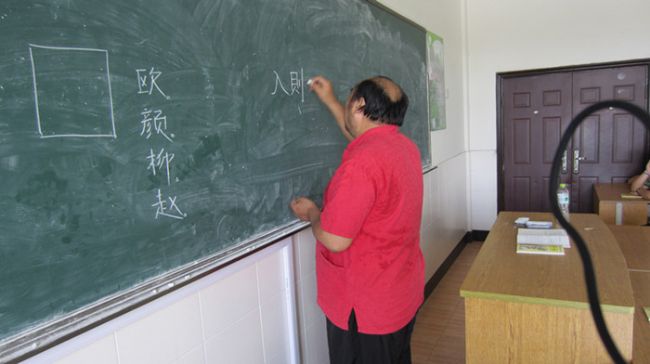 欧颜柳赵
入則